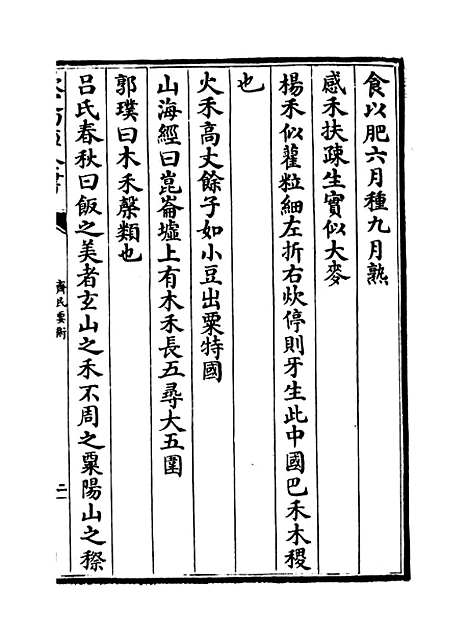 食以肥六月種九月熟
感禾扶疎生實似大麥
楊禾似藿粒細左折右炊停則牙生此中國巴禾木稷
也
火禾高丈餘子如小豆出粟特國
山海經曰崑崙墟上有木禾長五尋大五圍
郭璞曰木禾榖類也
呂氏春秋曰飯之美者玄山之禾不周之粟陽山之穄
齊民要術
二